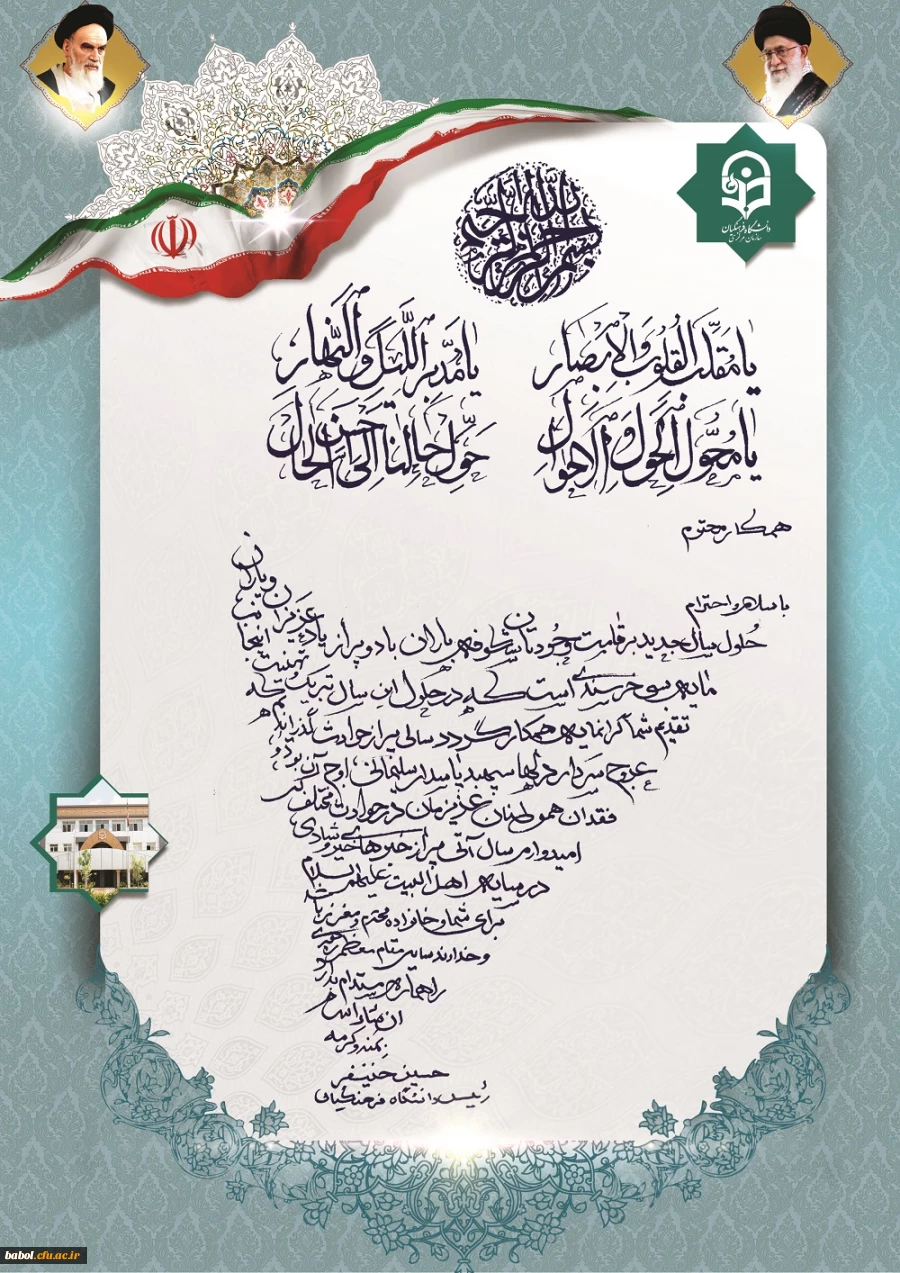 بسم الله الرحمن الرحیم
دانشگاه فرهنگیان
سازمان مرکزی
یا مُقَلِّبَ القُلُوبِ وَالأبصار یا مُدَبِّرَ اللَّیلِ وَالنَّهار
یا مُحَوِّلَ الحَولِ وَ الاَحوال حَوِّل حالَنا اِلی اَحسَنِ الحال
همکار محترم
با سلام و احترام
حُلول سال جدید بر قامت وجودتان شکوفه باران باد و پر از یاد عزیزان و یاران
مایه خرسندی است که در حلول این سال تبریک تهنیت اینجانب
تقدیم شما گرانمایه همکار گردد سالی پر از حوادث گذراندیم که
عروج سردار دلها سپهبد پاسدار سلیمانی اوج آن بود و
فقدان هموطنان عزیزمان در حوادث مختلف
امیدوارم سال آتی پر از خبرهای خیر و شادی
در سایه اهل البیت علیهم السلام
برای شما و خانواده محترم و معزز باشد
و خداوند سایه مقام معظم رهبری
را همواره مستدام بدارد
ان شاء الله
بمنه و کرمه
حسین خنیفر
رئیس دانشگاه فرهنگیان
babol.cfu.ac.ir